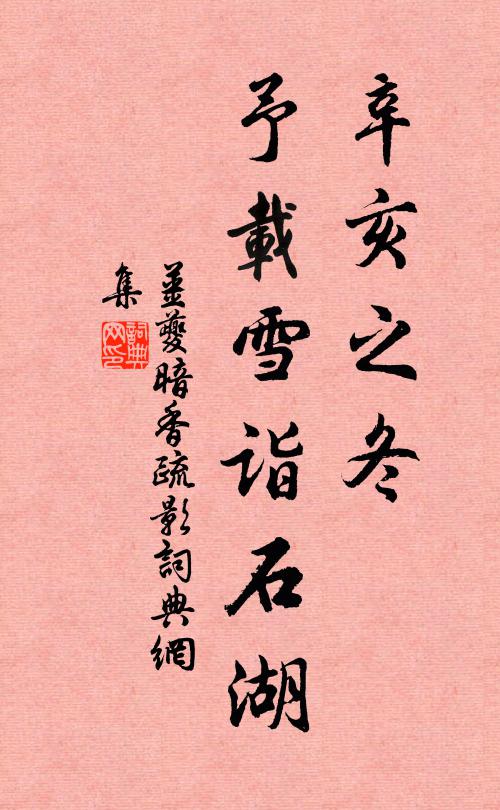 辛亥之冬
予載雪詣石湖
姜夔暗香疏影詞典網
集
詞典網印